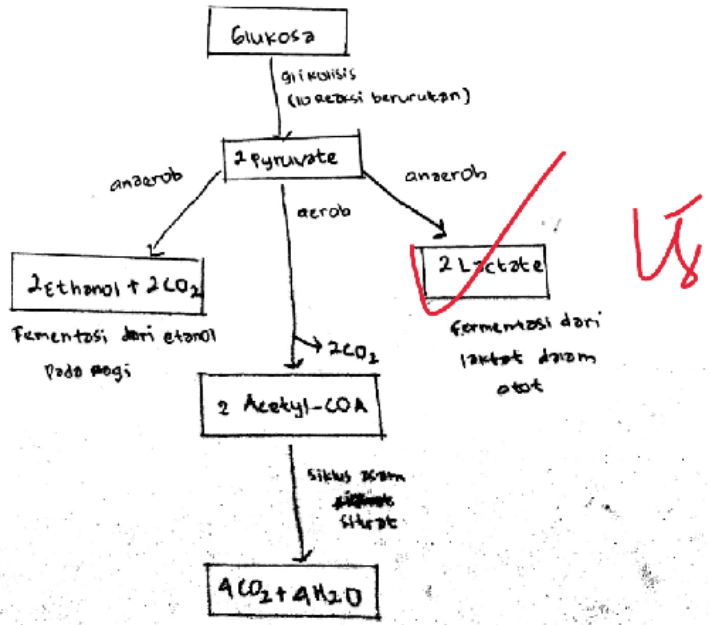 Glukosa
glikolisis
(10 Reaksi berurutan)
2 Pyruvate
anaerob
anaerob
aerob
2 Ethanol + 2CO2
2 Lactate
Fementasi dari etanol
pada ragi
fermentasi dari
laktat dalam
otot
2CO2
2 Acetyl-COA
siklus asam
sitrat
4CO2 + 4H2O